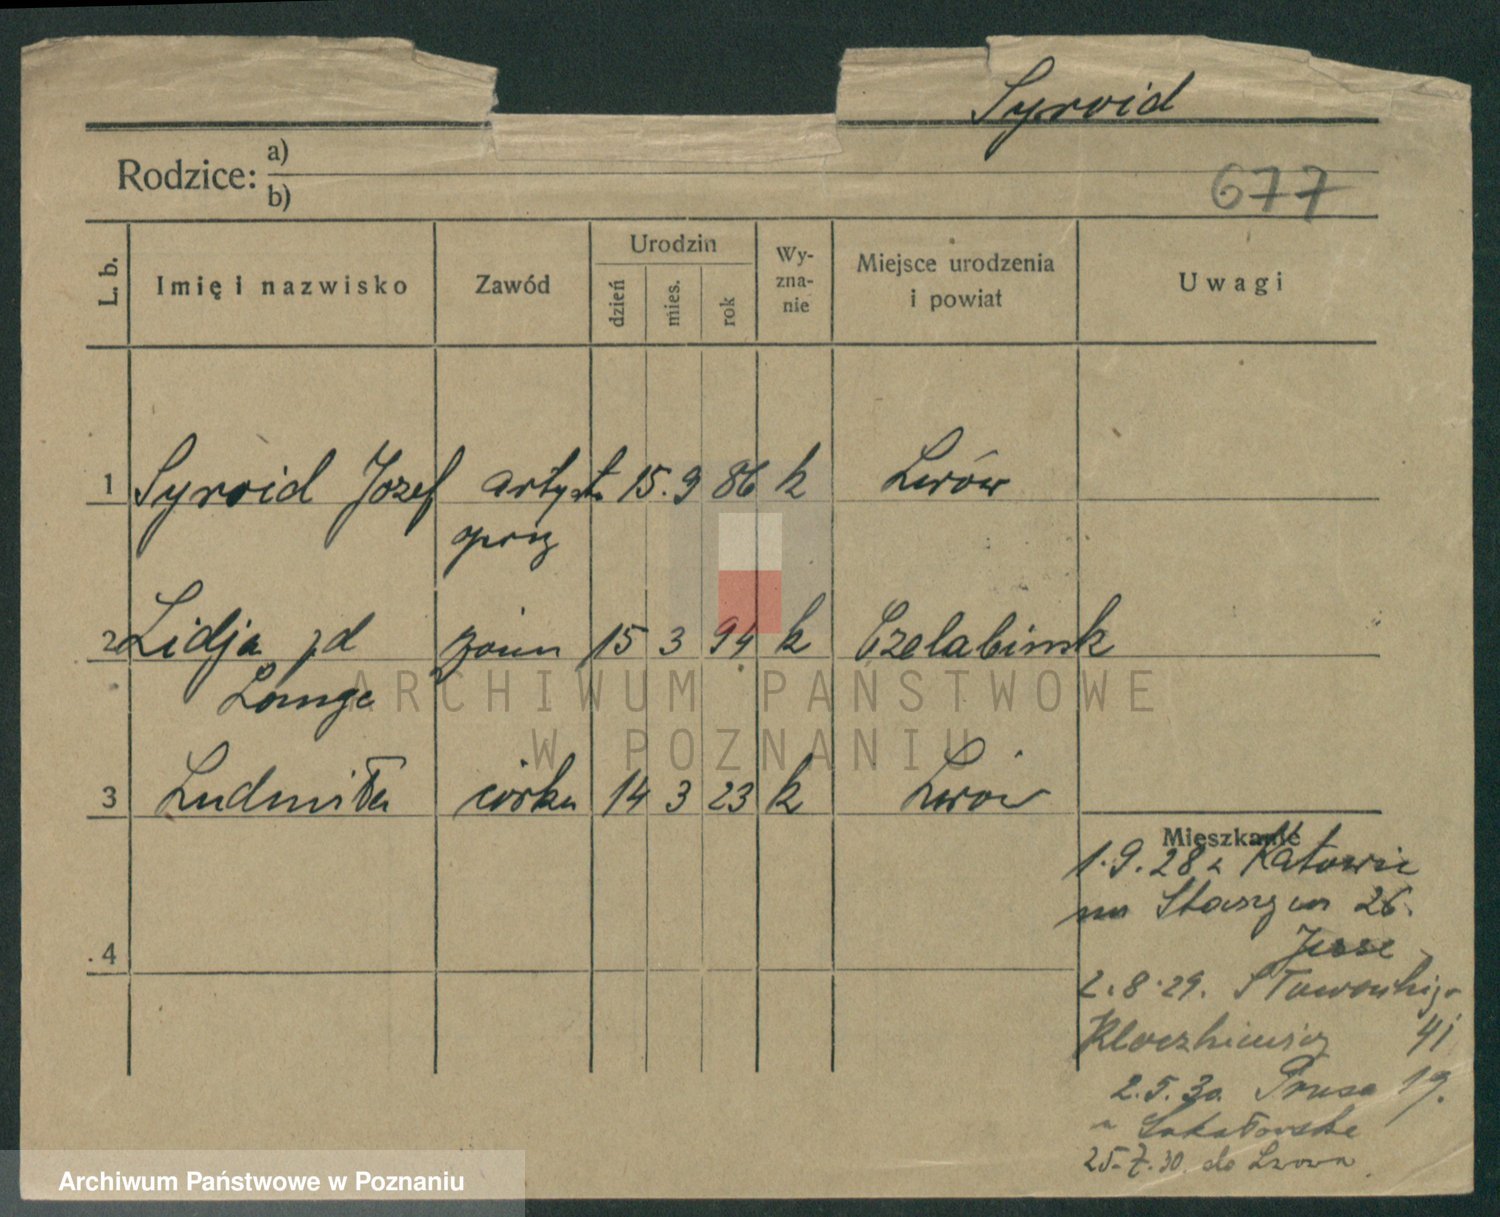 Syroid
Rodzice: a)
b)
677
L. b. Imię i nazwisko Zawód Urodzin dzień mies. rok Wy-zna-nie Miejsce urodzenia i powiat Uwagi
1 Syroid Józef artyst. 15. 9 86 k Lwów
2 Lidja zd żona 15 3 94 k Czelabinsk
Lange
3 Ludmiła córka 14 3 23 k Lwów
Mieszkanie
1.9.28 z Katowic
26.
Jesse
4
2.8.29. Słowackiego
41
2.5.30 Prusa 19.
25.7.30. do Lwowa
ARCHIWUM PAŃSTWOWE
W POZNANIU
Archiwum Państwowe w Poznaniu